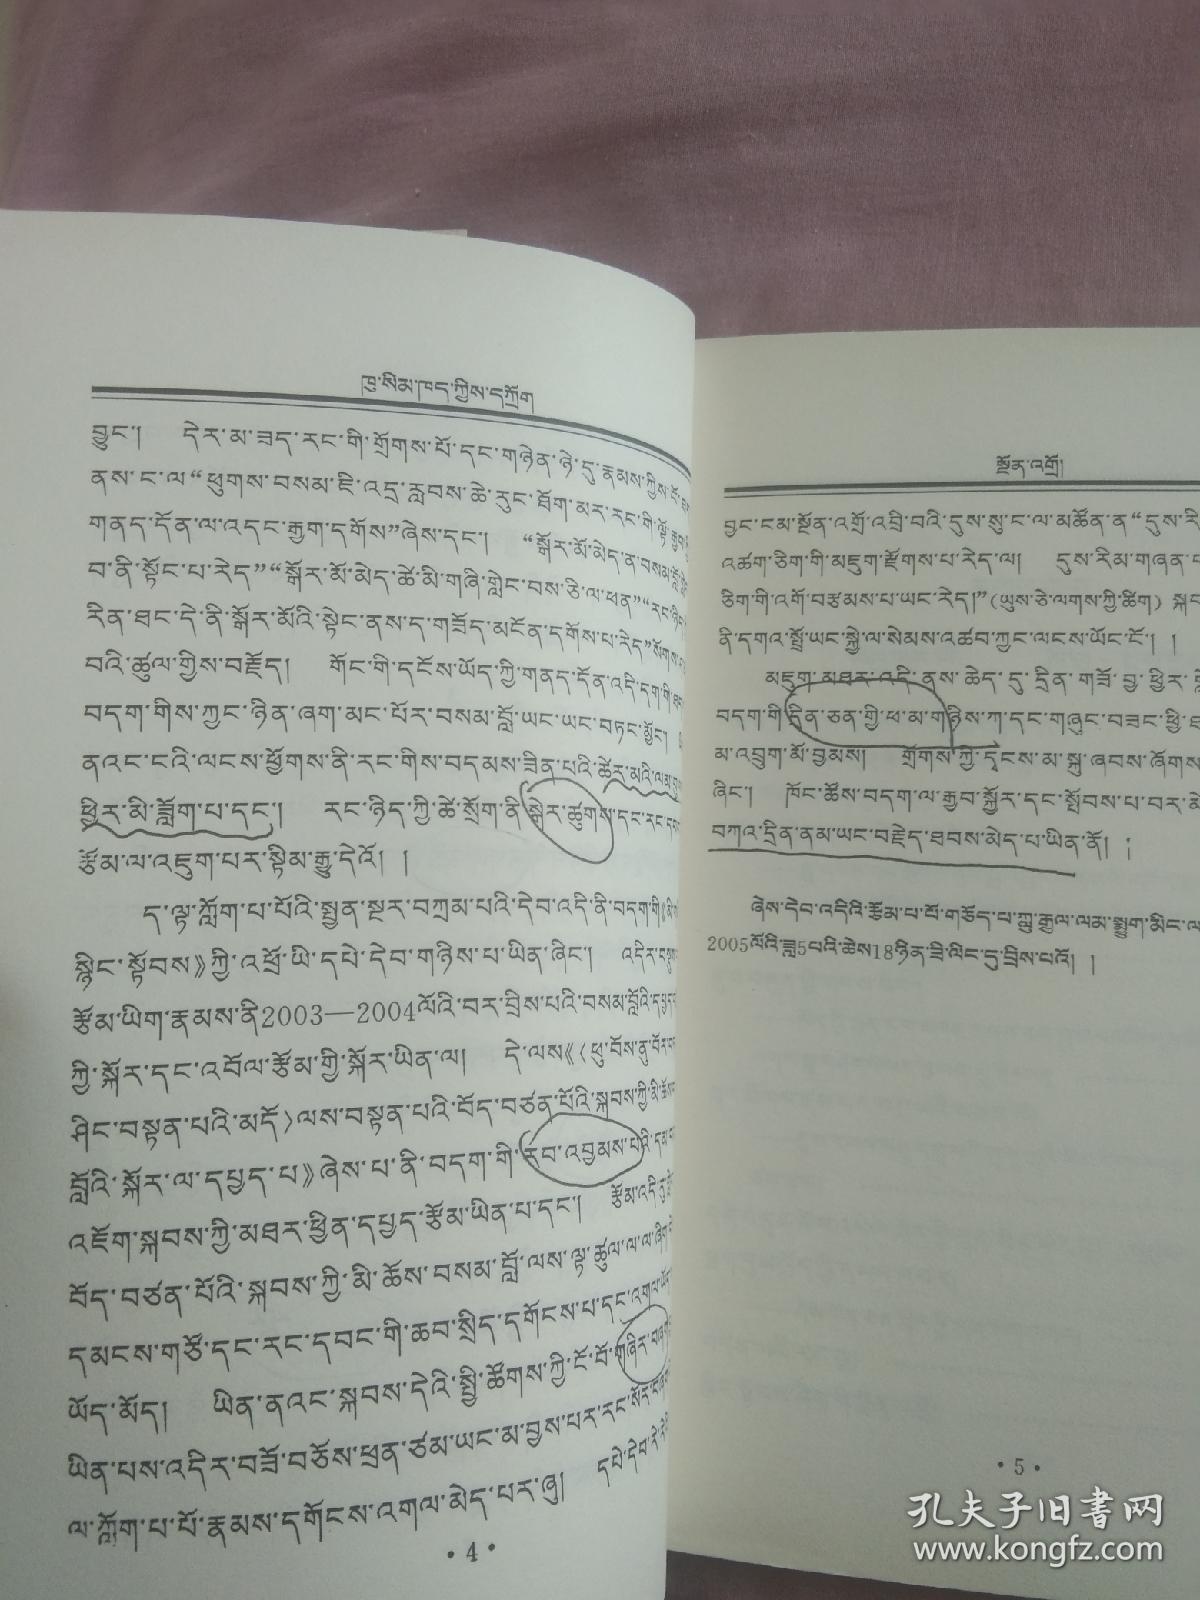 ཁྱ་སིམ་ཁད་ཀྱིས་དཀྲོག
བྱུང་། དེར་མ་ཟད་རང་གི་གྲོགས་པོ་དང་གཉེན་ཉེ་དུ་རྣམས་ཀྱིས་ངོ་
ནས་ང་ལ“ཕུགས་བསམ་ཇི་འདྲ་རླབས་ཆེ་རུང་ཐོག་མར་རང་གི་ལྟོ་རྒྱབ་
གནད་དོན་ལ་འདང་རྒྱག་དགོས”ཞེས་དང་། “སྒོར་མོ་མེད་ན་བསམ་བློ་
བ་ནི་སྟོང་པ་རེད”“སྒོར་མོ་མེད་ཚེ་མི་གཞི་གླེང་བས་ཅི་ལ་ཕན”“རང་ཉིད་
རིན་ཐང་དེ་ནི་སྒོར་མོའི་སྟེང་ནས་ད་གཟོད་མངོན་དགོས་པ་རེད”སོགས་
བའི་ཚུལ་གྱིས་བརྗོད། གོང་གི་དངོས་ཡོད་ཀྱི་གནད་དོན་འདི་དག་གི་ཐད་
བདག་གིས་ཀྱང་ཉིན་ཞག་མང་པོར་བསམ་བློ་ཡང་ཡང་བཏང་མྱོང་།
ནའང་ངའི་ལངས་ཕྱོགས་ནི་རང་གིས་བདམས་ཟིན་པའི་ཚོར་མའི་ལམ་
ཕྱིར་མི་ལྡོག་པ་དང་། རང་ཉིད་ཀྱི་ཚེ་སྲོག་ནི་སྒེར་ཚུགས་དང་རང་
རྩོམ་ལ་འཇུག་པར་སྟིམ་རྒྱུ་དེའོ། །
ད་ལྟ་ཀློག་པ་པོའི་སྤྱན་སྔར་བཀྲམ་པའི་དེབ་འདི་ནི་བདག་གི《མི
སྙིང་སྟོབས》ཀྱི་འཕྲོ་ཡི་དཔེ་དེབ་གཉིས་པ་ཡིན་ཞིང་། འདིར་བསྡུས་
རྩོམ་ཡིག་རྣམས་ནི2003—2004ལོའི་བར་བྲིས་པའི་བསམ་བློའི་དཔྱད་
ཀྱི་སྐོར་དང་འབོལ་རྩོམ་གྱི་སྐོར་ཡིན་ལ། དེ་ལས《〈ཕུ་བོས་ནུ་བོར་
ཤིང་བསྟན་པའི་མདོ〉ལས་བསྟན་པའི་བོད་བཙན་པོའི་སྐབས་ཀྱི་མི་ཆོས་
བློའི་སྐོར་ལ་དཔྱད་པ》ཞེས་པ་ནི་བདག་གི་རབ་འབྱམས་པའི་དམ་
འཇོག་སྐབས་ཀྱི་མཐར་ཕྱིན་དཔྱད་རྩོམ་ཡིན་པ་དང་། རྩོམ་འདི་རུ་
བོད་བཙན་པོའི་སྐབས་ཀྱི་མི་ཆོས་བསམ་བློ་ལས་ལྟ་ཚུལ་ལ་ལ་ཞིག་
དམངས་གཙོ་དང་རང་དབང་གི་ཆབ་སྲིད་དགོངས་པ་དང་འགལ་
ཡོད་མོད། ཡིན་ནའང་སྐབས་དེའི་སྤྱི་ཚོགས་ཀྱི་ངོ་བོ་གཞིར་བཞག་
ཡིན་པས་འདིར་བཟོ་བཅོས་ཕྲན་ཙམ་ཡང་མ་བྱས་པར་རང་སོར་བཞག་
ལ་ཀློག་པ་པོ་རྣམས་དགོངས་འགལ་མེད་པར་ཞུ། དཔེ་དེབ་འདི་
• 4 •
སྔོན་འགྲོ།
བྱང་ངམ་སྔོན་འགྲོ་འབྲི་བའི་དུས་སུ་ང་ལ་མཚོན་ན“དུས་རི
འཚག་ཅིག་གི་མཇུག་རྫོགས་པ་རེད་ལ། དུས་རིམ་གཞན་
ཅིག་གི་འགོ་བརྩམས་པ་ཡང་རེད།”(ཡུས་ཅེ་ལགས་ཀྱི་ཚིག) སྐབ
ནི་དགའ་སྤྲོ་ཡང་སྐྱེ་ལ་སེམས་འཚབ་ཀྱང་ལངས་ཡོང་ངོ་། །
མཇུག་མཐར་འདི་ནས་ཆེད་དུ་དྲིན་གཟོ་བྱ་ཕྱིར་
བདག་གི་དྲིན་ཅན་གྱི་ཕ་མ་གཉིས་ཀ་དང་གཞུང་བཟང་ཕྱི་
མ་འབྲུག་མོ་བྱམས། གྲོགས་ཀྱི་དྭངས་མ་སྐུ་ཞབས་ཞོགས
ཞིང་། ཁོང་ཚོས་བདག་ལ་རྒྱབ་སྐྱོར་དང་སྤོབས་པ་བར་མེ
བཀའ་དྲིན་ནམ་ཡང་བརྗེད་ཐབས་མེད་པ་ཡིན་ནོ། །
ཞེས་དེབ་འདིའི་རྩོམ་པ་པོ་གཅོད་པ་ཀླུ་རྒྱལ་ལམ་སྨྱུག་མིང་ལ
2005ལོའི་ཟླ5བའི་ཚེས18ཉིན་ཟི་ལིང་དུ་བྲིས་པའོ། །
• 5 •
孔夫子旧书网
www.kongfz.com